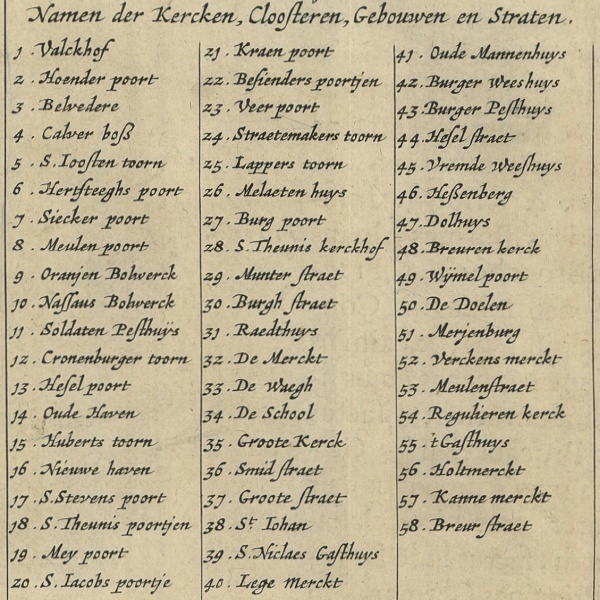 Namen der Kercken, Cloosteren, Gebouwen en Straten.
1 . Valckhof
2 . Hoender poort
3 . Belvedere
4 . Calver boß
5 . S. Ioosten toorn
6 . Hertsteeghs poort
7 . Siecker poort
8 . Meulen poort
9 . Oranjen Bolwerck
10 . Nassaus Bolwerck
11 . Soldaten Pesthuÿs
12 . Cronenburger toorn
13 . Hesel poort
14 . Oude Haven
15 . Huberts toorn
16 . Nieuwe haven
17 . S. Stevens poort
18 . S. Theunis poortjen
19 . Mey poort
20 . S. Iacobs poortje
21 . Kraen poort
22 . Besienders poortjen
23 . Veer poort
24 . Straetemakers toorn
25 . Lappers toorn
26 . Melaeten huys
27 . Burg poort
28 . S. Theunis kerckhof
29 . Munter straet
30 . Burgh straet
31 . Raedthuys
32 . De Merckt
33 . De Waegh
34 . De School
35 . Groote Kerck
36 . Smid straet
37 . Groote straet
38 . St Iohan
39 . S. Niclaes Gasthuys
40 . Lege Merckt
41 . Oude Mannenhuys
42 . Burger Weeshuys
43 . Burger Pesthuys
44 . Hesel straet
45 . Vremde Weeshuys
46 . Heßenberg
47 . Dolhuys
48 . Breuren kerck
49 . Wÿmel poort
50 . De Doelen
51 . Merjenburg
52 . Verckens merckt
53 . Meulenstraet
54 . Regulieren kerck
55 . 't Gasthuys
56 . Holtmerckt
57 . Kanne merckt
58 . Breur straet